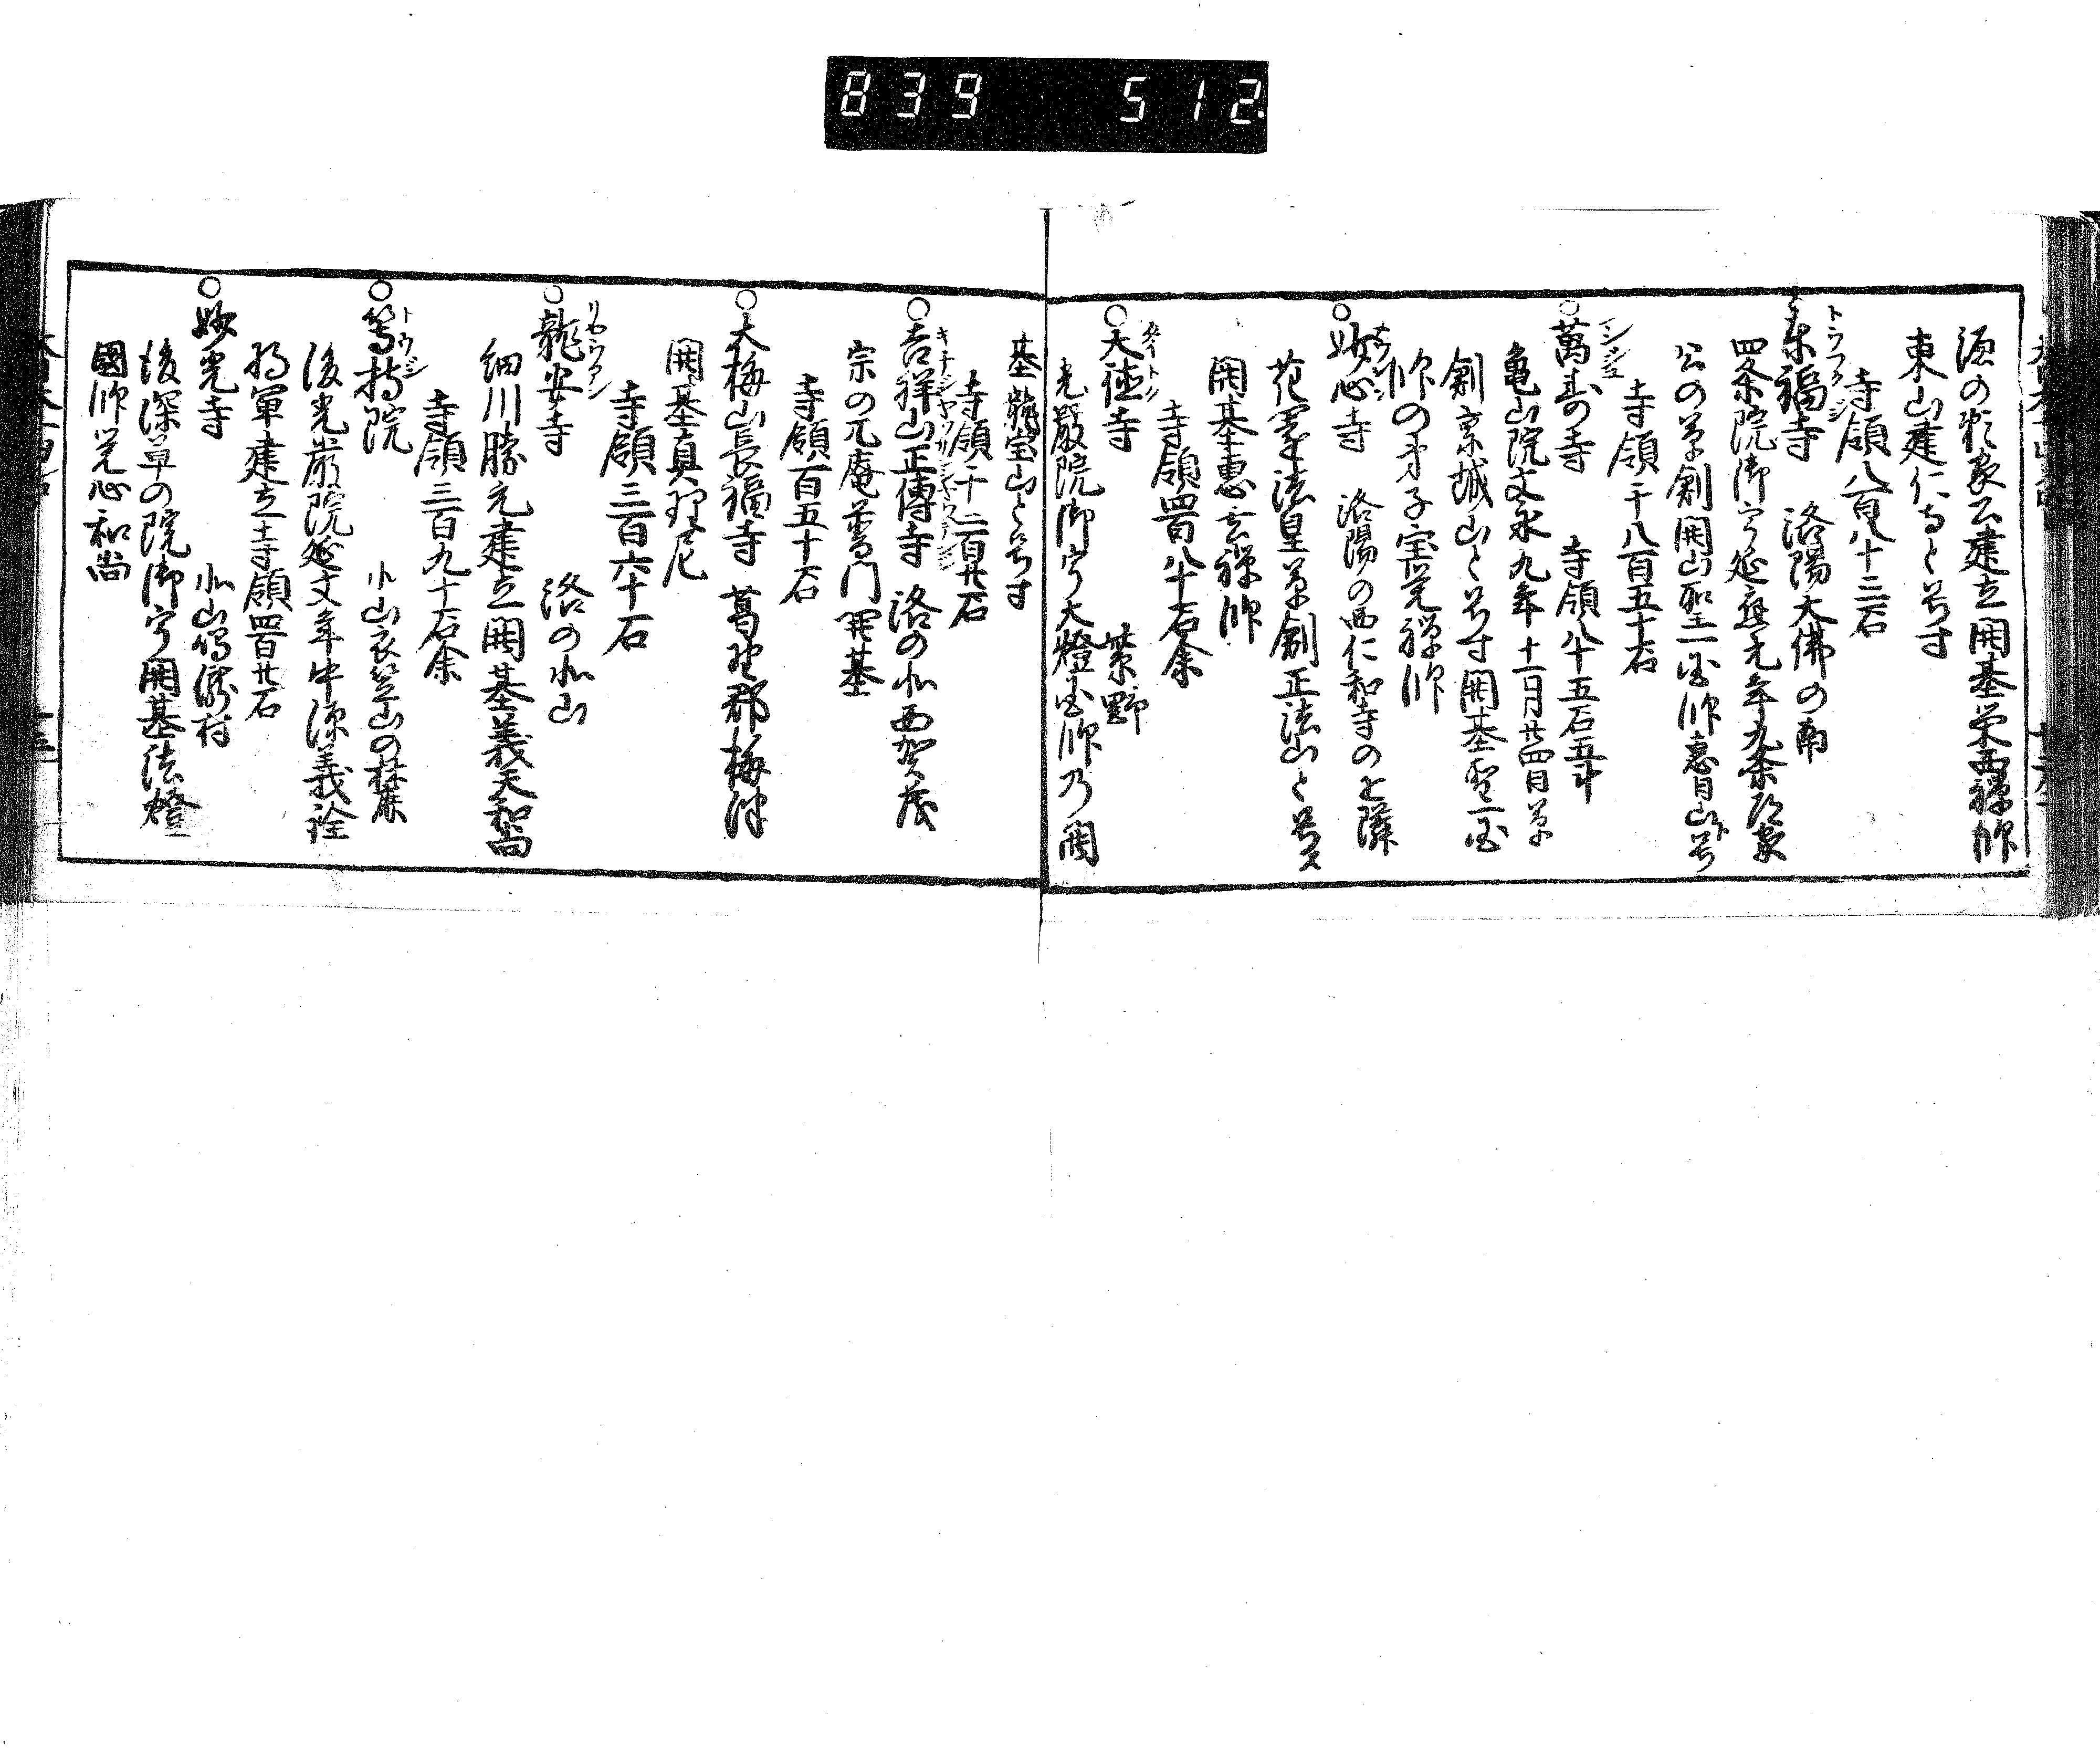 839 512
源の頼家公建立開基栄西禅師
東山建仁寺と号す
寺領八百八十二石
東福寺 洛陽大佛の南
トウフクジ
四条院御宇延應元年九条道家
公の草創開山聖一国師恵日山ト号
寺領千八百五十石
萬寿寺 寺領八十五石五斗
マンジユ
亀山院文永九年十一月廿四日草
創京城山と号す開基聖一国
師の弟子宝覚禅師
○妙心寺 洛陽の西仁和寺の上隣
花園法皇草創正法山と号ス
開基惠玄禅師
寺領四百八十石余
○大徳寺 紫野
ダイトク
光嚴院御宇大燈国師乃開
基龍宝山と号す
寺領千二百廿石
○吉祥山正傳寺 洛の北西賀茂
宗の兀庵普門開基
寺領百五十石
○大梅山長福寺 葛野郡梅津
開基真理尼
寺領三百六十石
○龍安寺 洛の北山
リヤウアン
細川勝元建立開基義天和尚
寺領三百九十石余
○等持院 北山衣笠山の麓
トウジ
後光嚴院延文年中源義詮
将軍建立寺領四百廿石
○妙光寺 北山鳴瀧村
後深草の院御宇開基法燈
國師覚心和尚